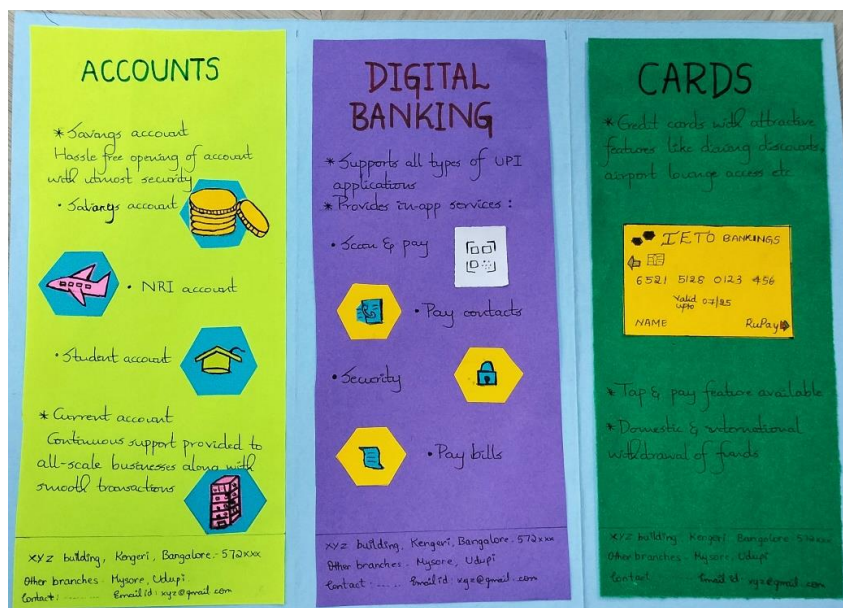 ACCOUNTS
* Savings account
Hassle free opening of account
with utmost security
• Savings account
• NRI account
• Student account
* Current account
Continuous support provided to
all-scale businesses along with
smooth transactions
xyz building, Kengeri, Bangalore - 572xxx
Other branches - Mysore, Udupi
Contact : ...... Email id : xyz@gmail.com
DIGITAL
BANKING
* Supports all types of UPI
applications
* Provides in-app services :
• Scan & pay
• Pay contacts
• Security
• Pay bills
xyz building, Kengeri, Bangalore - 572xxx
Other branches - Mysore, Udupi
Contact : ...... Email id : xyz@gmail.com
CARDS
* Credit cards with attractive
features like dining discounts,
airport lounge access etc
IETO BANKINGS
6521 5128 0123 456
Valid
upto 07/25
NAME RuPay
* Tap & pay feature available
* Domestic & international
withdrawal of funds
xyz building, Kengeri, Bangalore - 572xxx
Other branches - Mysore, Udupi
Contact ...... Email id xyz@gmail.com